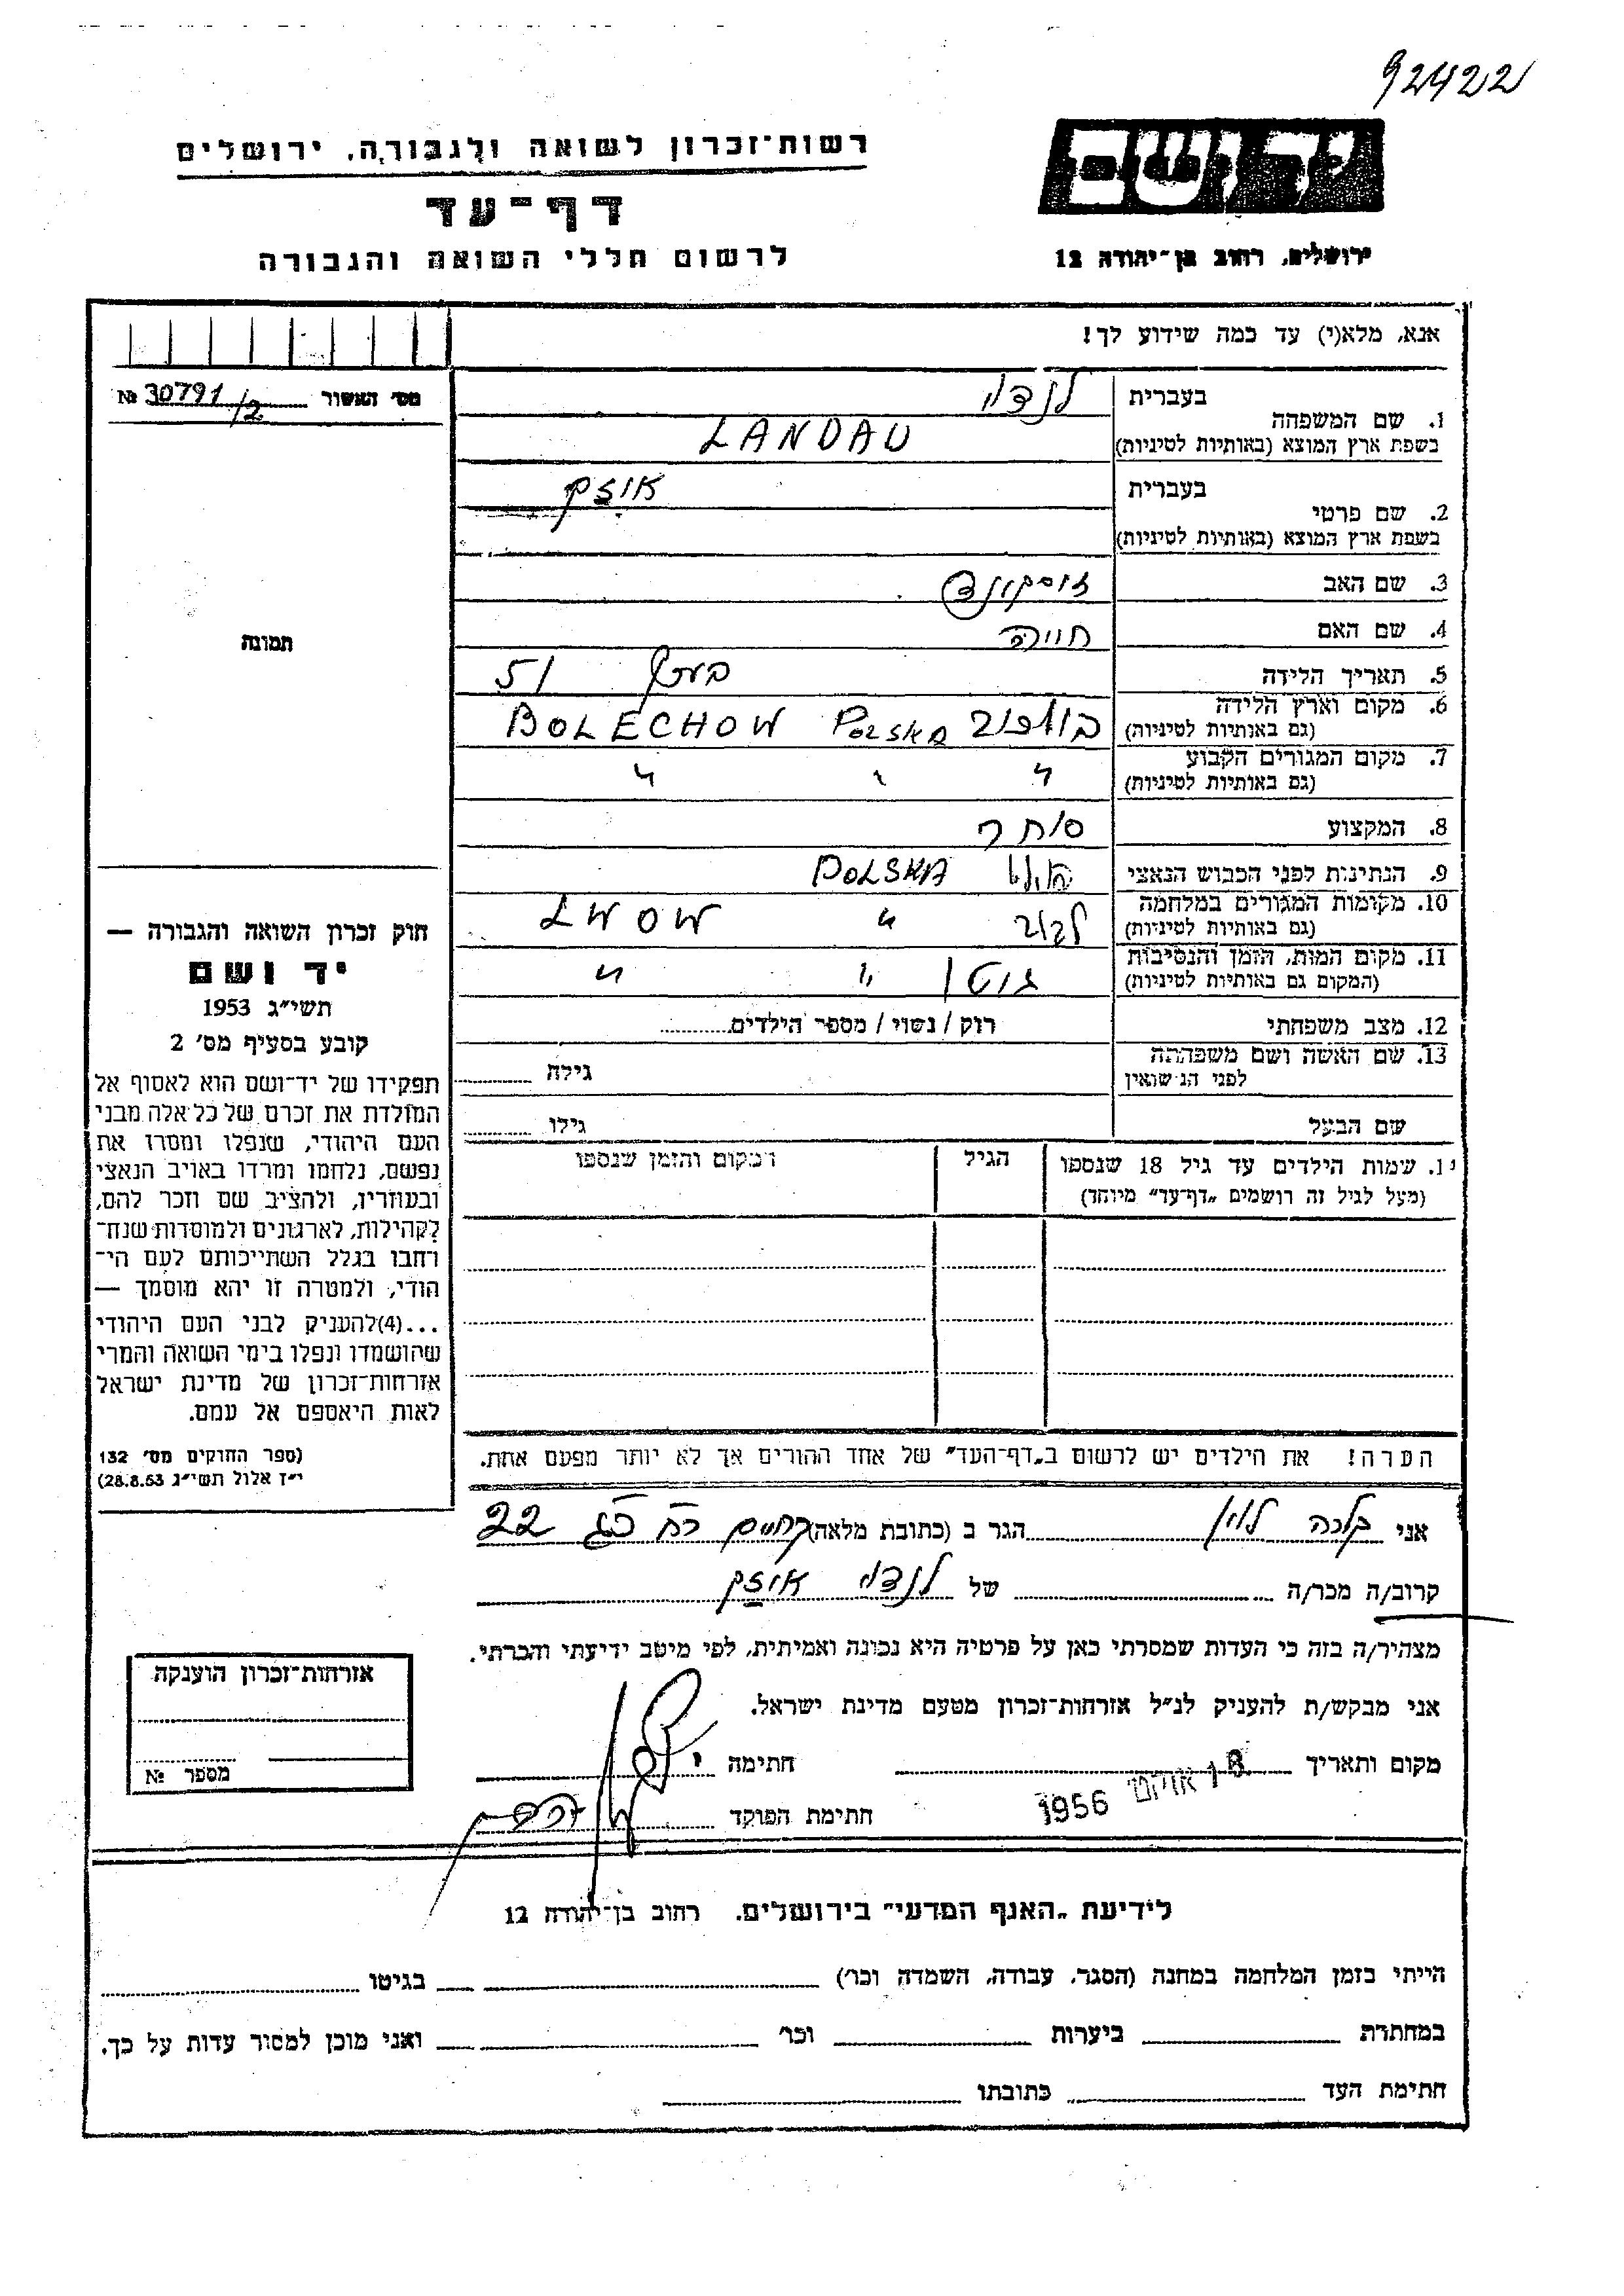 92422
רשות־זכרון לשואה ולגבורה, ירושלים
יד ושם
דף־עד
לרשום חללי השואה והגבורה
ירושלים, רחוב בן־יהודה 12
אנא, מלא(י) עד כמה שידוע לך!
מס׳ האשור 30791/2 №
1. שם המשפחה
בעברית לנדוי
בשפת ארץ המוצא (באותיות לטיניות) LANDAU
2. שם פרטי
בעברית
בשפת ארץ המוצא (באותיות לטיניות)
3. שם האב
4. שם האם
5. תאריך הלידה 51
6. מקום וארץ הלידה
(גם באותיות לטיניות) BOLECHOW POLSKA
7. מקום המגורים הקבוע
(גם באותיות לטיניות) " " "
8. המקצוע סוחר
9. הנתינות לפני הכבוש הנאצי POLSKA
10. מקומות המגורים במלחמה
(גם באותיות לטיניות) לבוב " LWOW
11. מקום המות, הזמן והנסיבות
(המקום גם באותיות לטיניות) גטו " "
12. מצב משפחתי רוק / נשוי / מספר הילדים
13. שם האשה ושם משפחתה
לפני הנשואין גילה
שם הבעל גילו
שמות הילדים עד גיל 18 שנספו הגיל המקום והזמן שנספו
(מעל לגיל זה רושמים „דף־עד״ מיוחד)
הערה! את הילדים יש לרשום ב„דף־העד״ של אחד ההורים אך לא יותר מפעם אחת.
תמונה
חוק זכרון השואה והגבורה —
יד ושם
תשי״ג 1953
קובע בסעיף מס׳ 2
תפקידו של יד־ושם הוא לאסוף אל
המולדת את זכרם של כל אלה מבני
העם היהודי, שנפלו ומסרו את
נפשם, נלחמו ומרדו באויב הנאצי
ובעוזריו, ולהציב שם וזכר להם,
לקהילות, לארגונים ולמוסדות שנח־
רחבו בגלל השתייכותם לעם הי־
הודי, ולמטרה זו יהא מוסמך —
...(4)להעניק לבני העם היהודי
שהושמדו ונפלו בימי השואה והמרי
אזרחות־זכרון של מדינת ישראל
לאות היאספם אל עמם.
(ספר החוקים מס׳ 132
י״ז אלול תשי״ג 28.8.53)
אני הגר ב (כתובת מלאה) 22
קרוב/ה מכר/ה של לנדוי
מצהיר/ה בזה כי העדות שמסרתי כאן על פרטיה היא נכונה ואמיתית, לפי מיטב ידיעתי והכרתי.
אני מבקש/ת להעניק לנ״ל אזרחות־זכרון מטעם מדינת ישראל.
מקום ותאריך 1956 חתימה
חתימת הפוקד
אזרחות־זכרון הוענקה
מספר №
לידיעת „האגף המדעי״ בירושלים, רחוב בן־יהודה 12
הייתי בזמן המלחמה במחנה (הסגר, עבודה, השמדה וכו׳) בגיטו
במחתרת ביערות וכו׳ ואני מוכן למסור עדות על כך.
חתימת העד כתובתו